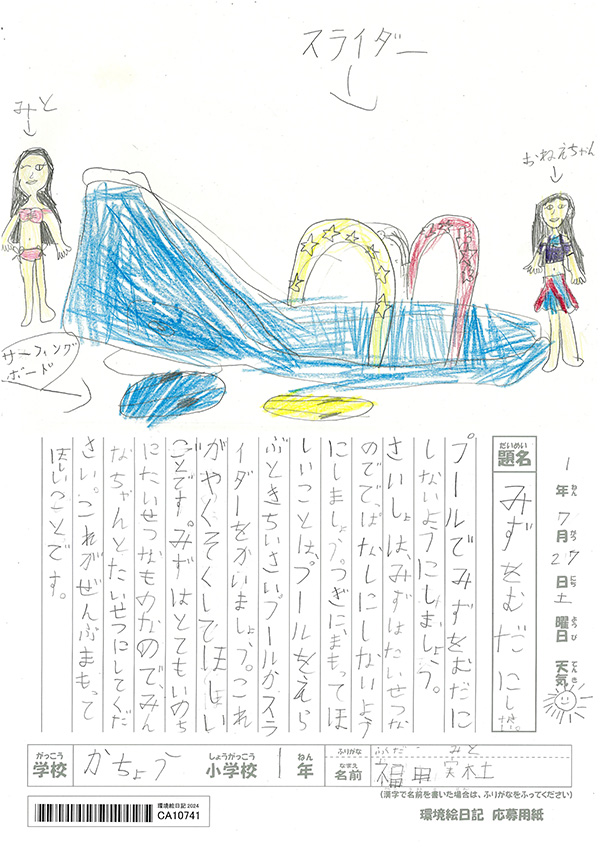 スライダー
みと
おねえちゃん
サーフィング
ボード
1年7月27日土曜日 天気
ねん がつ にち ようび てんき
だいめい
題名
みずをむだにし
プールでみずをむだに
しないようにしましょう。
さいしょは、みずはたいせつな
のでで、ぱなしにしないよう
にしましょう。つぎに、まもってほ
しいことは、プールをえら
ぶときちいさいプールかスラ
イダーをかいましょう。これ
がやくそくしてほしい
ことです。みずはとてもいのち
にたいせつなものなので、みん
なちゃんとたいせつにしてくだ
さい。これがぜんぶまもって
ほしいことです。
がっこう しょうがっこう ねん
学校 かちょう 小学校 1年
ふりがな ふくだ みと
なまえ
名前 福田 実杜
(漢字で名前を書いた場合は、ふりがなをふってください)
環境絵日記 2024
CA10741
環境絵日記 応募用紙